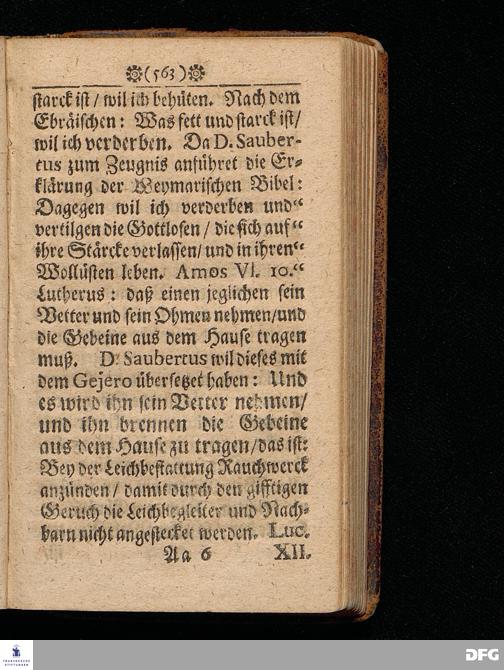 (563)
starck ist / wil ich behüten. Nach dem
Ebräischen: Was fett und starck ist/
wil ich verderben. Da D. Sauber-
tus zum Zeugnis anführet die Er-
klärung der Weymarischen Bibel:
Dagegen wil ich verderben und“
vertilgen die Gottlosen / die sich auf“
ihre Stärcke verlassen/ und in ihren“
Wollüsten leben. Amos VI. 10.“
Lutherus: daß einen jeglichen sein
Vetter und sein Ohmen nehmen/und
die Gebeine aus dem Hause tragen
muß. D. Saubertus wil dieses mit
dem Gejero übersetzet haben: Und
es wird ihn sein Vetter nehmen/
und ihn brennen die Gebeine
aus dem Hause zu tragen/das ist:
Bey der Leichbestattung Rauchwerck
anzünden / damit durch den gifftigen
Geruch die Leichbegleiter und Nach-
barn nicht angestecket werden. Luc.
Aa 6 XII.
FRANCKESCHE
STIFTUNGEN
DFG